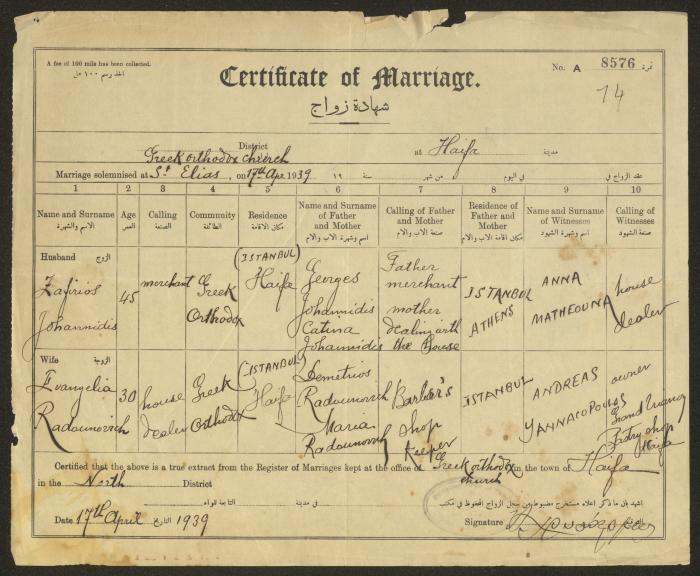 A fee of 100 mils has been collected.
No. A 8576 نمرة
أخذ رسم ١٠٠ مل
Certificate of Marriage.
74
شهادة زواج
District
Greek orthodox church at Haifa مدينة
Marriage solemnised at St Elias, on 17th Apr 1939 ١٩ سنة من شهر في اليوم عقد الزواج في
1 2 3 4 5 6 7 8 9 10
Name and Surname Age Calling Community Residence Name and Surname of Father and Mother Calling of Father and Mother Residence of Father and Mother Name and Surname of Witnesses Calling of Witnesses
الاسم والشهرة العمر الصنعة الطائفة مكان الاقامة اسم وشهرة الاب والام صنعة الاب والام مكان اقامة الاب والام اسم وشهرة الشهود صنعة الشهود
Husband الزوج
Zafirios Johannidis
45
merchant
Greek Orthodox
(ISTANBUL) Haifa
Georges Johannidis Catina Johannidis
Father merchant mother dealing with the House
ISTANBUL ATHENS
ANNA MATHEOUNA
house dealer
Wife الزوجة
Evangelia Radounovich
30
house dealer
Greek Orthodox
(ISTANBUL) Haifa
Demetrios Radounovich Maria Radounovich
Barber's shop Keeper
ISTANBUL
ANDREAS YANNACOPOULOS
owner Haifa
Certified that the above is a true extract from the Register of Marriages kept at the office of Greek orthodox church in the town of Haifa
in the North District التابعة للواء في مدينة اشهد بان ما ذكر اعلاه مستخرج مضبوط من سجل الزواج المحفوظ في مكتب
Date 17th April التاريخ 1939 Signature